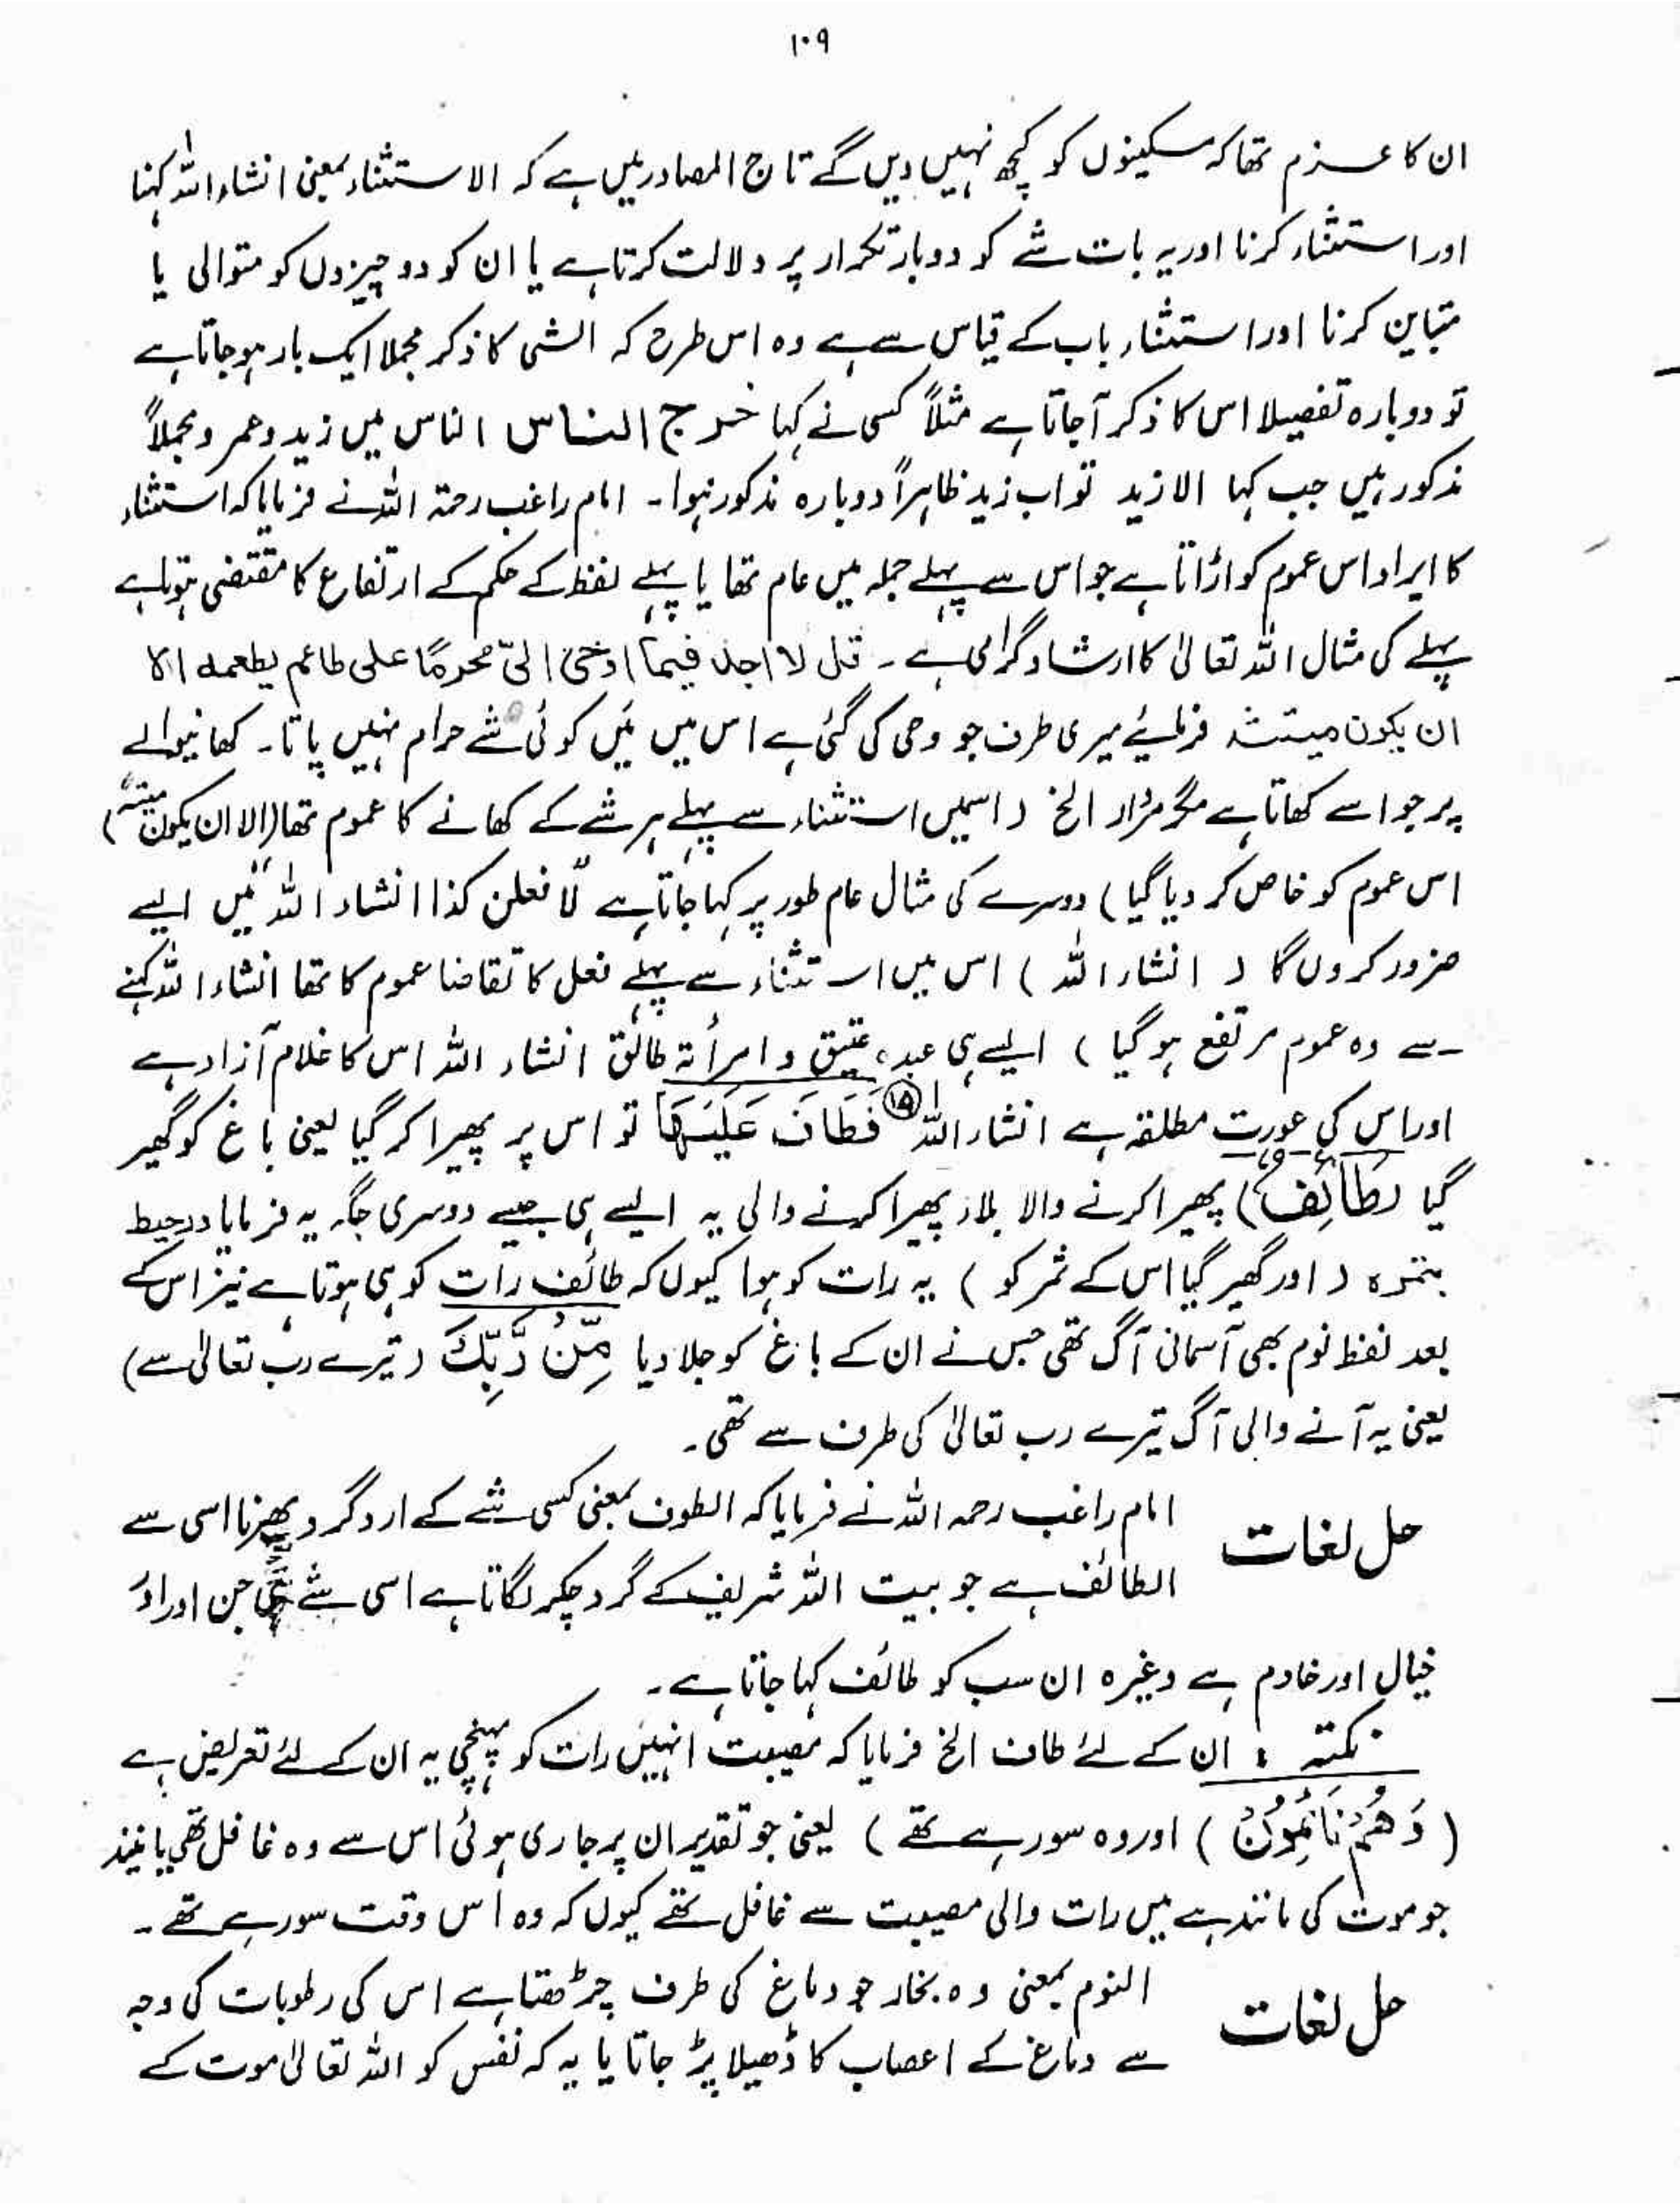 ۱۰۹
ان کا عزم تھا کہ مسکینوں کو کچھ نہیں دیں گے تاج المصادر میں ہے کہ الاستثناء بمعنی انشاء اللہ کہنا
اور استثناء کرنا اور یہ بات شے کو دوبار تکرار پر دلالت کرتا ہے یا ان کو دو چیزوں کو متوالی یا
متباین کرنا اور استثناء باب کے قیاس سے ہے وہ اس طرح کہ الشی کا ذکر مجملا ایک بار ہو جاتا ہے
تو دوبارہ تفصیلا اس کا ذکر آجاتا ہے مثلاً کسی نے کہا خرج الناس الناس میں زید و عمر و مجملاً
مذکور ہیں جب کہا الا زید تو اب زید ظاہراً دوبارہ مذکور ہوا۔ امام راغب رحمۃ اللہ نے فرمایا کہ استثناء
کا ایراد اس عموم کو اڑاتا ہے جو اس سے پہلے جملہ میں عام تھا یا پہلے لفظ کے حکم کے ارتفاع کا مقتضی ہوتا ہے
پہلے کی مثال اللہ تعالیٰ کا ارشاد گرامی ہے۔ قل لا اجد فیما اوحی الیّ محرمًا علی طاعم یطعمہ الا
ان یکون میتۃ فرمائیے میری طرف جو وحی کی گئی ہے اس میں مَیں کوئی شے حرام نہیں پاتا۔ کھانیوالے
پر جو اسے کھاتا ہے مگر مردار الخ ( اسمیں استثناء سے پہلے ہر شے کے کھانے کا عموم تھا (الا ان یکون میتۃً)
اس عموم کو خاص کر دیا گیا ) دوسرے کی مثال عام طور پر کہا جاتا ہے لَافعلن کذا انشاء اللہ مَیں ایسے
ضرور کروں گا ( انشاء اللہ ) اس میں استثناء سے پہلے فعل کا تقاضا عموم کا تھا انشاء اللہ کہنے
سے وہ عموم مرتفع ہو گیا ) ایسے ہی عبدہ عتیق و امرأۃ طالق انشاء اللہ اس کا غلام آزاد ہے
اور اس کی عورت مطلقہ ہے انشاء اللہ فَطَافَ عَلَیْهَا تو اس پر پھیرا کر گیا یعنی باغ کو گھیر
گیا (طَائِفٌ) پھیرا کرنے والا بلاء پھیرا کرنے والی یہ ایسے ہی جیسے دوسری جگہ یہ فرمایا و احیط
بثمرہ ( اور گھیر گیا اس کے ثمر کو ) یہ رات کو ہوا کیوں کہ طائف رات کو ہی ہوتا ہے نیز اس کے
بعد لفظ نوم بھی آسمانی آگ تھی جس نے ان کے باغ کو جلا دیا مِّنْ رَّبِّكَ ( تیرے رب تعالیٰ سے)
یعنی یہ آنے والی آگ تیرے رب تعالیٰ کی طرف سے تھی۔
حل لغات
امام راغب رحمہ اللہ نے فرمایا کہ الطوف بمعنی کسی شے کے ارد گرد پھرنا اسی سے
الطائف ہے جو بیت اللہ شریف کے گرد چکر لگاتا ہے اسی شے جن اور
خیال اور خادم ہے وغیرہ ان سب کو طائف کہا جاتا ہے۔
نکتہ : ان کے لئے طاف الخ فرمایا کہ مصیبت انہیں رات کو پہنچی یہ ان کے لئے تعریض ہے
( وَهُمْ نَائِمُوْنَ ) اور وہ سو رہے تھے ) یعنی جو تقدیر ان پر جاری ہوئی اس سے وہ غافل تھے یا نیند
جو موت کی مانند ہے میں رات والی مصیبت سے غافل تھے کیوں کہ وہ اُس وقت سو رہے تھے۔
حل لغات
النوم بمعنی وہ بخار جو دماغ کی طرف چڑھتا ہے اس کی رطوبات کی وجہ
سے دماغ کے اعصاب کا ڈھیلا پڑ جاتا یا یہ کہ نفس کو اللہ تعالیٰ موت کے